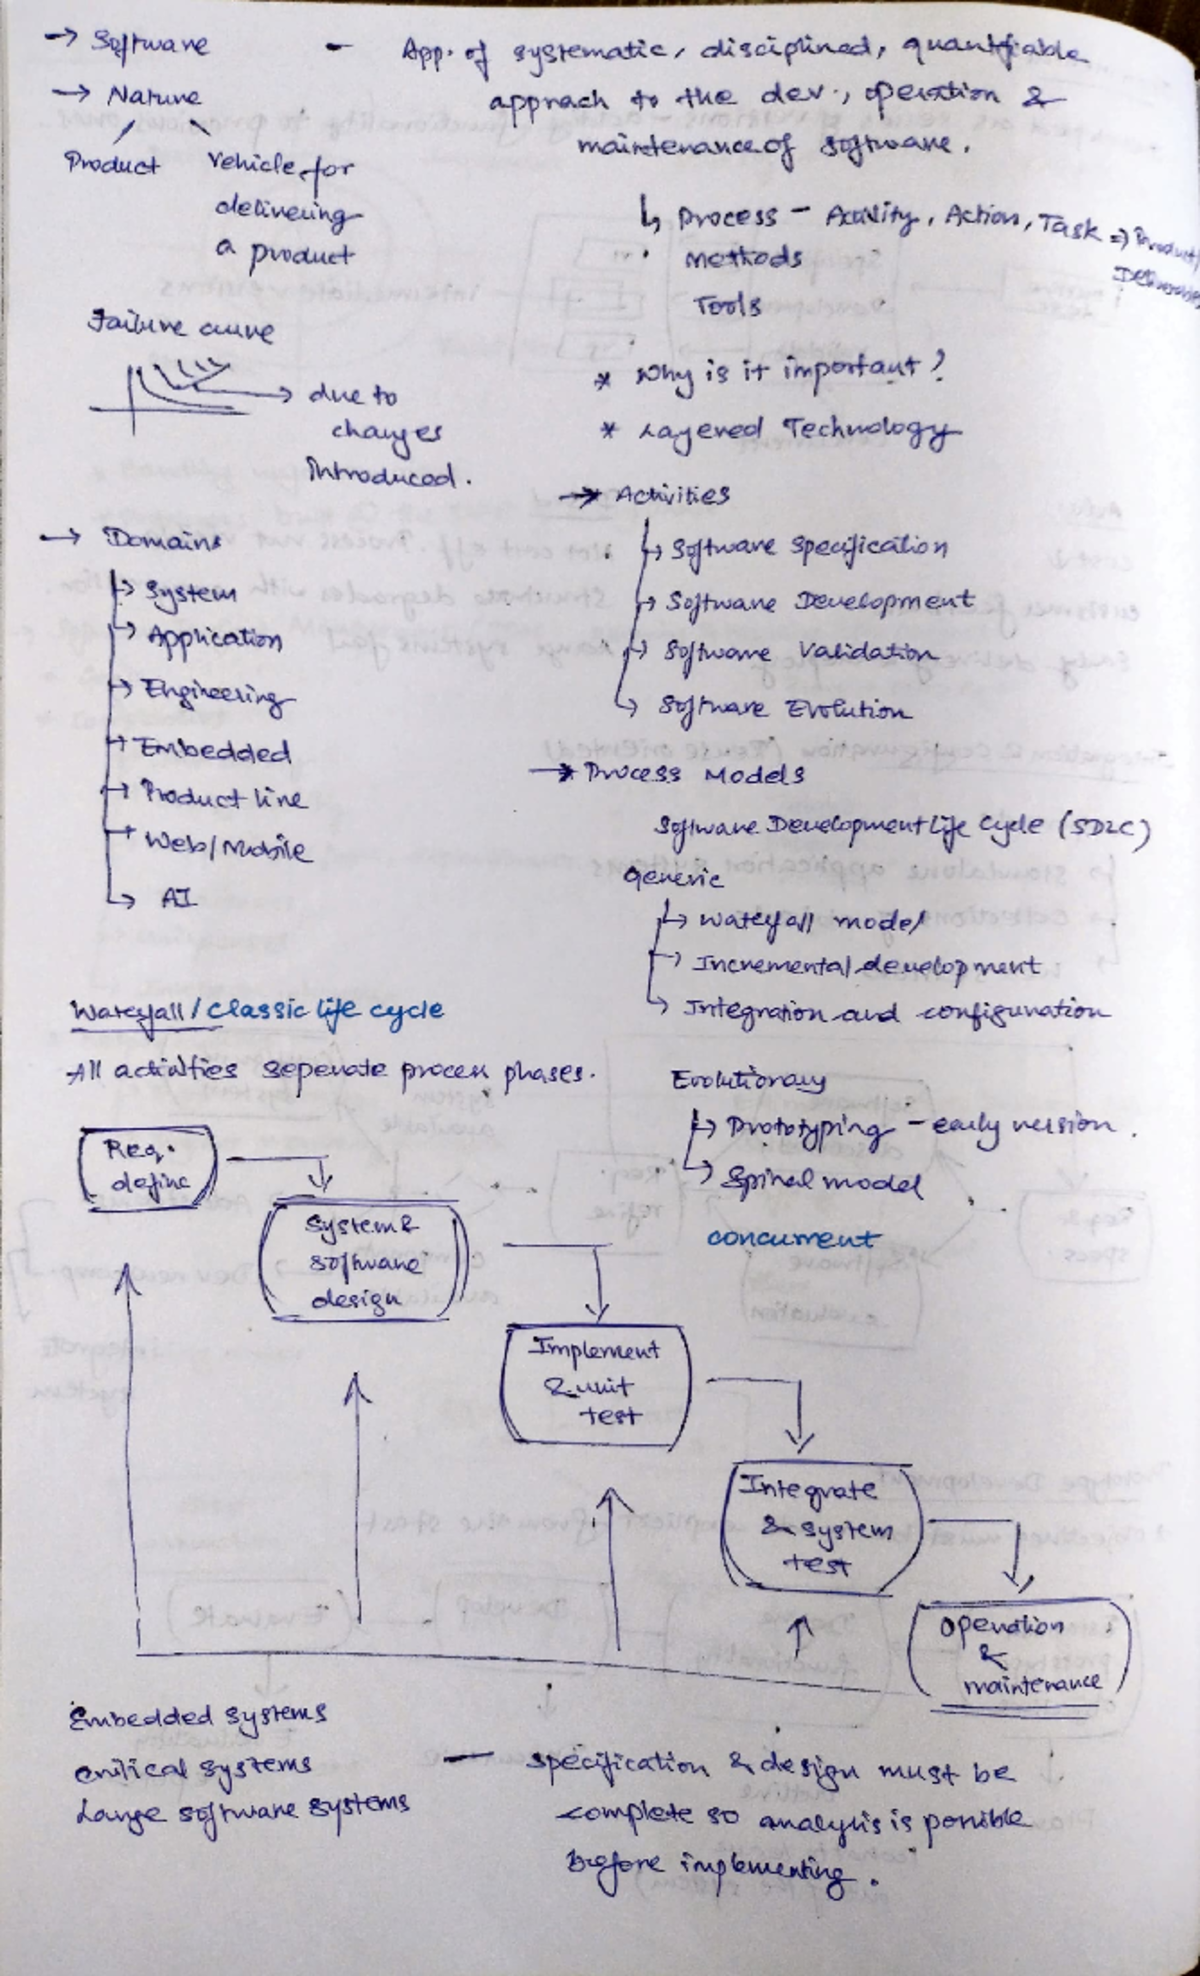 → Software
- App. of systematic, disciplined, quantifiable
apprach to the dev., operation &
maintenance of software.
→ Nature
Product
Vehicle for
delivering
a product
↳ Process - Activity, Action, Task ⇒ Product/
Deliverables
Methods
Tools
Failure curve
→ due to
changes
introduced.
* Why is it important?
* Layered Technology
→ Activities
↳ Software Specification
↳ Software Development
↳ Software Validation
↳ Software Evolution
→ Domains
↳ System
↳ Application
↳ Engineering
↳ Embedded
↳ Product line
↳ Web/Mobile
↳ AI
→ Process Models
Software Development Life Cycle (SDLC)
Generic
↳ Waterfall model
↳ Incremental development
↳ Integration and configuration
Evolutionary
↳ Prototyping - early version.
↳ Spiral model
concurrent
Waterfall / Classic life cycle
All activities seperate process phases.
Req.
define
System &
software
design
Implement
& unit
test
Integrate
& system
test
Operation
&
maintenance
Embedded systems
critical systems
Large software systems
— specification & design must be
complete so analysis is possible
before implementing.